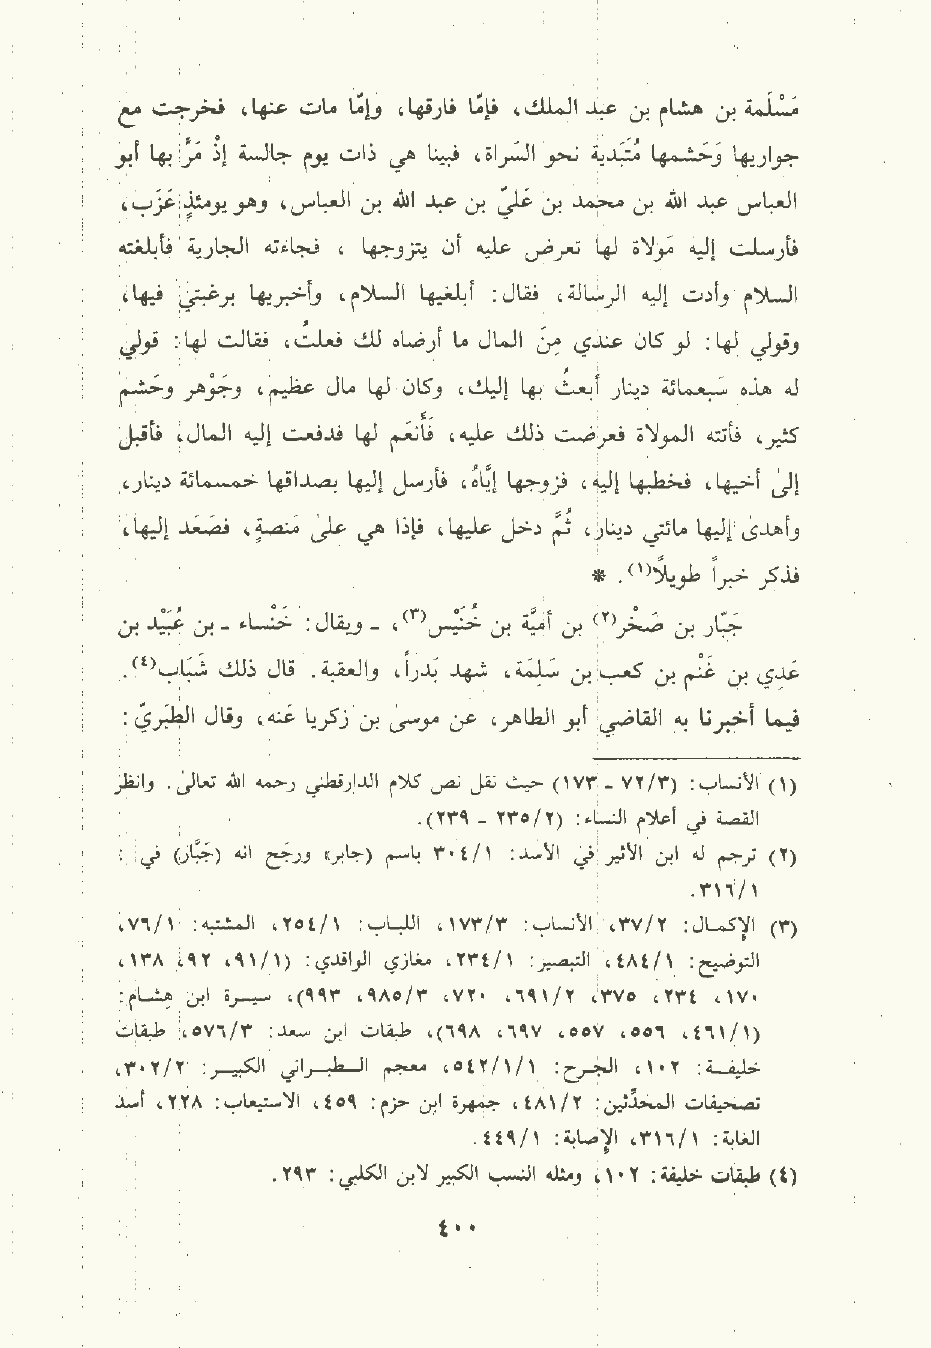 مَسْلَمة بن هشام بن عبد الملك، فإمّا فارقها، وإمّا مات عنها، فخرجت مع
جواريها وَحَشمها مُتَبَدية نحو السَراة، فبينا هي ذات يوم جالسة إذْ مَرَّ بها أبو
العباس عبد الله بن محمد بن عَليّ بن عبد الله بن العباس، وهو يومئذٍ عَزَب،
فأرسلت إليه مَولاة لها تعرض عليه أن يتزوجها ، فجاءته الجارية فأبلغته
السلام وأدت إليه الرسالة، فقال: أبلغيها السلام، وأخبريها برغبتي فيها،
وقولي لها: لو كان عندي مِنَ المال ما أرضاه لك فعلتُ، فقالت لها: قولي
له هذه سَبعمائة دينار أبعثُ بها إليك، وكان لها مال عظيم، وجَوْهر وحَشم
كثير، فأتته المولاة فعرضت ذلك عليه، فأنعَمَ لها فدفعت إليه المال، فأقبل
إلىٰ أخيها، فخطبها إليه، فزوجها إيَّاهُ، فأرسل إليها بصداقها خمسمائة دينار،
وأهدىٰ إليها مائتي دينار، ثُمَّ دخل عليها، فإذا هي علىٰ مَنصةٍ، فصَعَد إليها،
فذكر خبراً طويلاً(١). *
جَبّار بن صَخْر(٢) بن أميَّة بن خُنَيْس(٣)، ـ ويقال: خَنْساء ـ بن عُبَيْد بن
عَدِي بن غَنْم بن كعب بن سَلِمَة، شهد بَدراً، والعقبة. قال ذلك شَبَاب(٤).
فيما أخبرنا به القاضي أبو الطاهر، عن موسىٰ بن زكريا عَنه، وقال الطَبريّ:
(١) الأنساب: (٣/٧٢ ـ ١٧٣) حيث نقل نص كلام الدارقطني رحمه الله تعالىٰ. وانظر
القصة في أعلام النساء: (٢/٢٣٥ ـ ٢٣٩).
(٢) ترجم له ابن الأثير في الأسد: ٣٠٤/١ باسم (جابر» ورجَح انه (جَبَّار) في:
٣١٦/١.
(٣) الإكمال: ٣٧/٢، الأنساب: ١٧٣/٣، اللباب: ٢٥٤/١، المشتبه: ٧٦/١،
التوضيح: ٤٨٤/١، التبصير: ٢٣٤/١، مغازي الواقدي: (٩١/١، ٩٢، ١٣٨،
١٧٠، ٢٣٤، ٣٧٥، ٦٩١/٢، ٧٢٠، ٩٨٥/٣، ٩٩٣)، سيرة ابن هِشام:
(٤٦١/١، ٥٥٦، ٥٥٧، ٦٩٧، ٦٩٨)، طبقات ابن سعد: ٥٧٦/٣، طبقات
خليفة: ١٠٢، الجرح: ٥٤٢/١/١، معجم الطبراني الكبير: ٣٠٢/٢،
تصحيفات المحدِّثين: ٤٨١/٢، جمهرة ابن حزم: ٤٥٩، الاستيعاب: ٢٢٨، أسد
الغابة: ٣١٦/١، الإصابة: ٤٤٩/١.
(٤) طبقات خليفة: ١٠٢، ومثله النسب الكبير لابن الكلبي: ٢٩٣.
٤٠٠